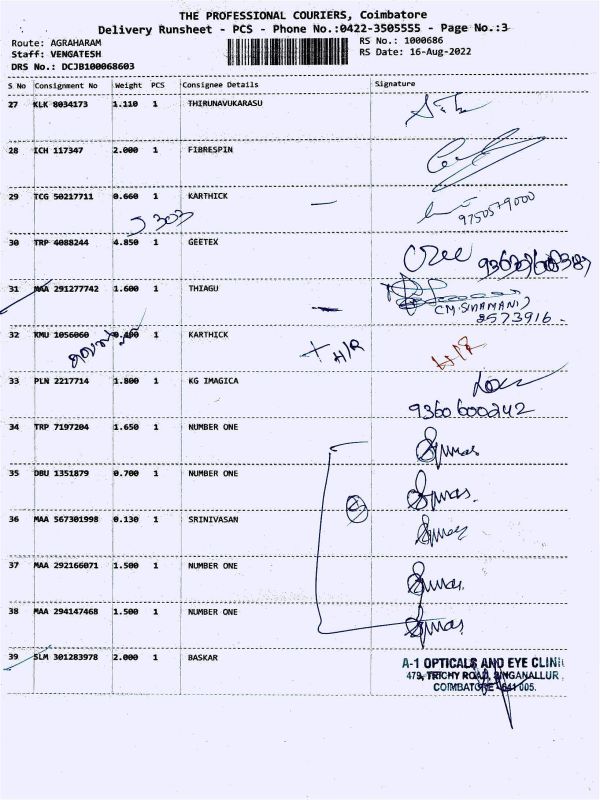 THE PROFESSIONAL COURIERS, Coimbatore
Delivery Runsheet - PCS - Phone No.:0422-3505555 - Page No.:3
Route: AGRAHARAM
RS No.: 1000686
Staff: VENGATESH
RS Date: 16-Aug-2022
DRS No.: DCJB100068603
S No Consignment No Weight PCS Consignee Details Signature
27 KLK 8034173 1.110 1 THIRUNAVUKARASU
28 ICH 117347 2.000 1 FIBRESPIN
29 TCG 50217711 0.660 1 KARTHICK
9750579000
303
30 TRP 4088244 4.850 1 GEETEX
31 MAA 291277742 1.600 1 THIAGU
(M.SIVAMANI)
8573916.
32 KMU 1056060 0.400 1 KARTHICK H/R H/R
33 PLN 2217714 1.800 1 KG IMAGICA
9360600242
34 TRP 7197204 1.650 1 NUMBER ONE
35 DBU 1351879 0.700 1 NUMBER ONE
36 MAA 567301998 0.130 1 SRINIVASAN
37 MAA 292166071 1.500 1 NUMBER ONE
38 MAA 294147468 1.500 1 NUMBER ONE
39 SLM 301283978 2.000 1 BASKAR
A-1 OPTICALS AND EYE CLINI
479, TRICHY ROAD, SINGANALLUR,
COIMBATORE - 641 005.